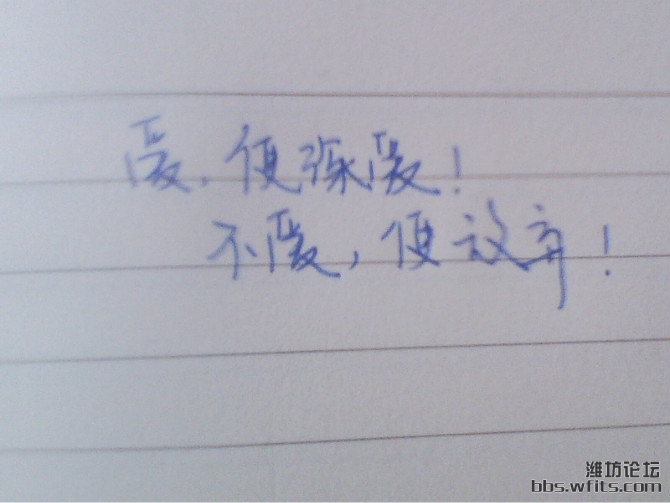 爱，便深爱！
不爱，便放弃！
潍坊论坛
bbs.wfits.com